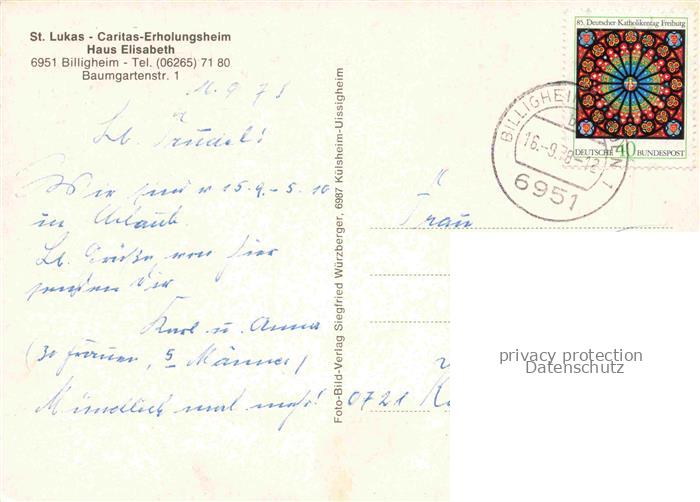 St. Lukas - Caritas-Erholungsheim
Haus Elisabeth
6951 Billigheim - Tel. (06265) 71 80
Baumgartenstr. 1
Lb. Trudel!
Wir sind v 15.9.-5.10
in Urlaub
Lb. Grüße von hier
senden Dir
Karl u. Anna
(30 Frauen, 5 Männer)
Mündlich mal mehr!
Foto-Bild-Verlag Siegfried Würzberger, 6987 Külsheim-Uissigheim
85. Deutscher Katholikentag Freiburg
DEUTSCHE 40 BUNDESPOST
BILLIGHEIM
16.-9.78-12
6951
Frau
privacy protection
Datenschutz